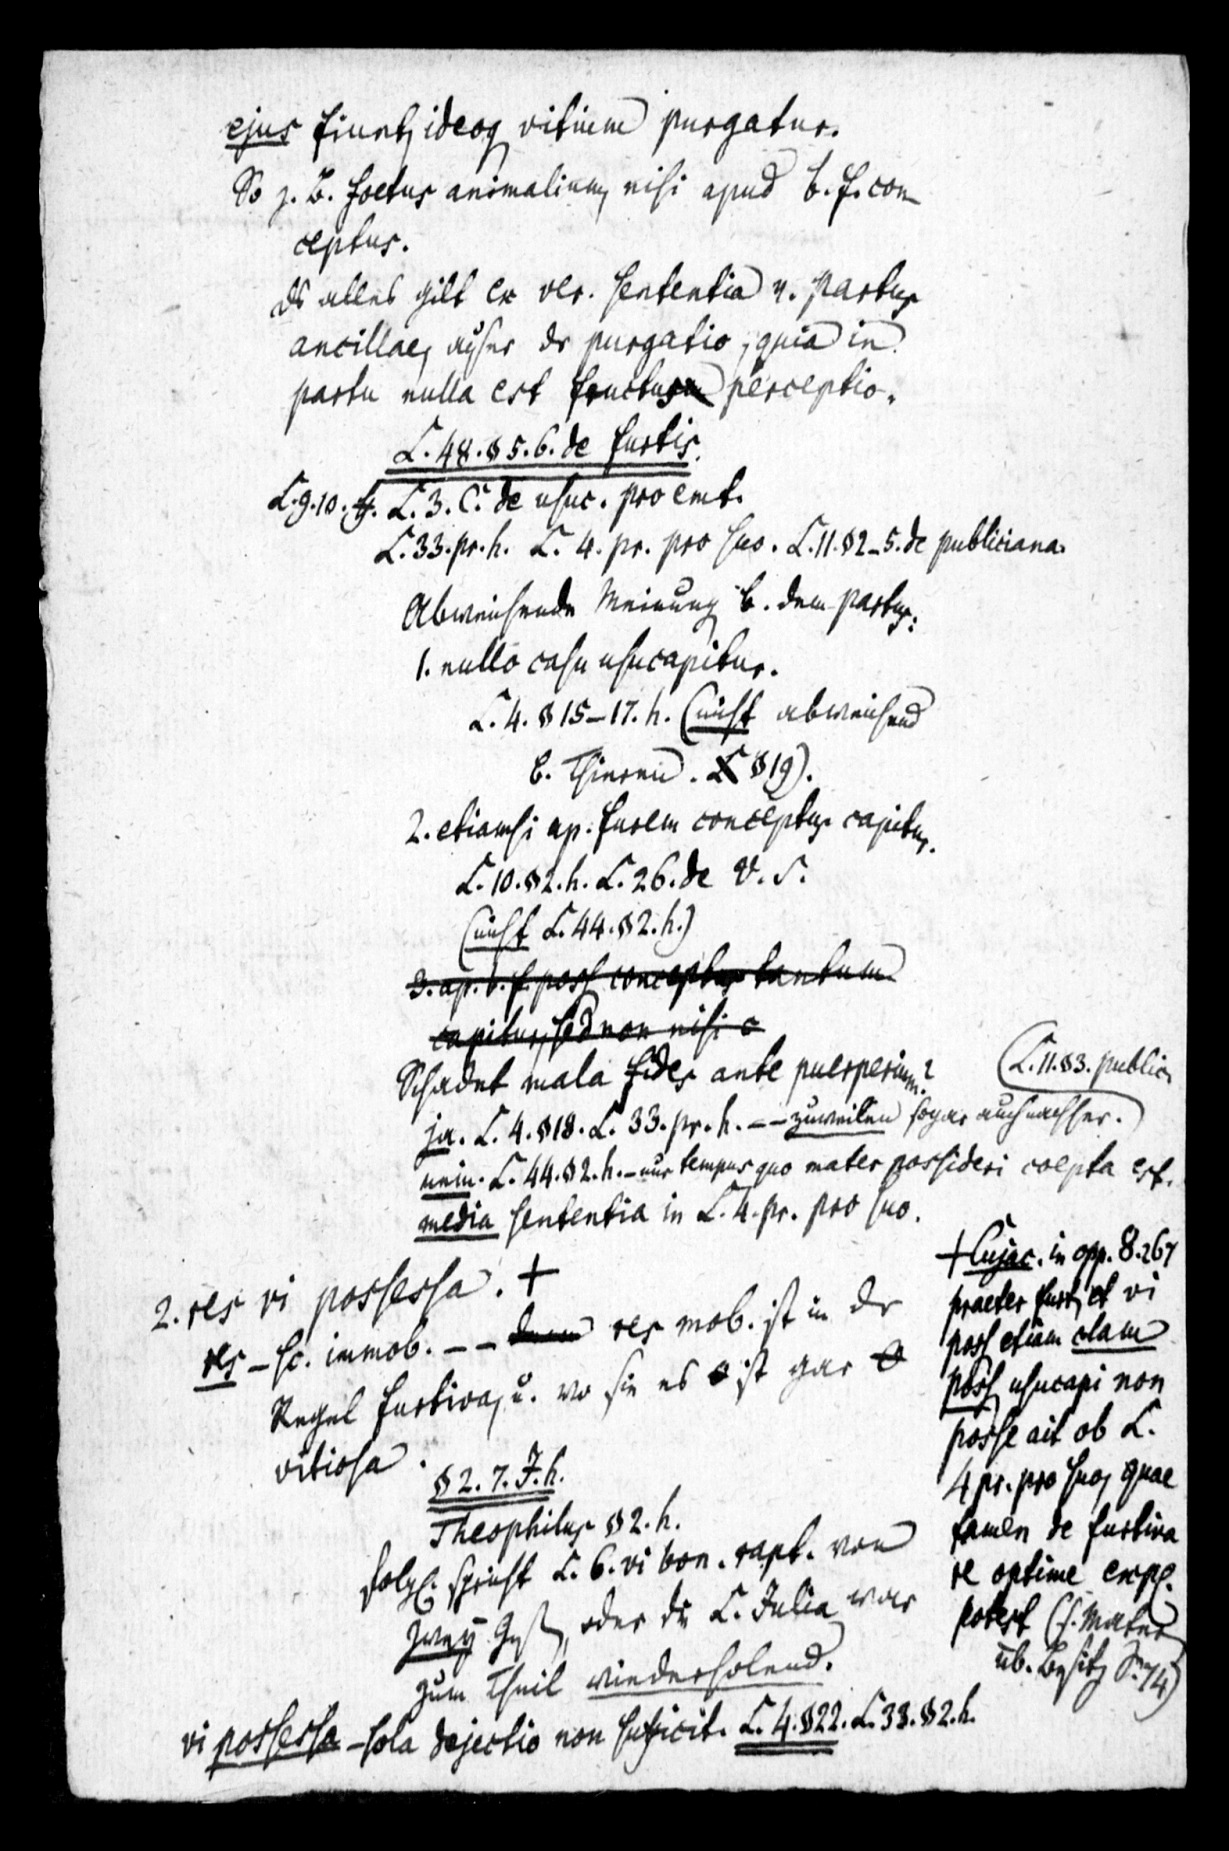 ejus fiunt, ideoq vitium purgatur.
So z. B. foetus animalium, nisi apud b. f. con
ceptus.
Ds alles gilt ex ver. sententia v. partus
ancillae, außer dr purgatio, quia in
partu nulla est fructus perceptio.
L. 48. § 5. 6. de furtis.
L. 9. 10. L. 3. C. de usuc. pro emt.
L. 33. pr. h. L. 4. pr. pro suo. L. 11. § 2_5. de publiciana.
Abweichende Meinung b. dem partus:
1. nullo casu usucapitur.
L. 4. § 15–17. h. (nicht abweichend
b. Thieren. § 19).
2. etiamsi ap. furem conceptus capitur.
L. 10. § 2. h. L. 26. de V. S.
(nicht L. 44. § 2. h.)
3. ap. b. f. poss conceptus tantum
capitur, sed non nisi c
Schadet mala fides ante puerperium?
(L. 11. § 3. public.
ja. L. 4. § 18. L. 33. pr. h. – – zuweilen sogar auch nachher.)
nein. L. 44. § 2. h. – nur tempus quo mater possideri coepta est.
media sententia in L. 4. pr. pro suo.
2. res vi possessa. +
res – sc. immob. – – res mob. ist in dr
Regel furtiva, u. wo sie es ist gar
vitiosa.
§ 2. 7. J. h.
Theophilus § 2. h.
folgl. spricht L. 6. vi bon. rapt. von
zwey, oder die L. Julia war
zum Theil wiederholend.
vi possessa – sola dejectio non sufficit. L. 4. § 22. L. 33. § 2. h.
+ Cujac. in opp. 8. 267
praeter furt, et vi
poss etiam clam
poss, usucapi non
posse ait ob L.
4 pr. pro suo, quae
tamen de furtiva
re optime expl.
potest (s.
üb. Besitz S. 74)